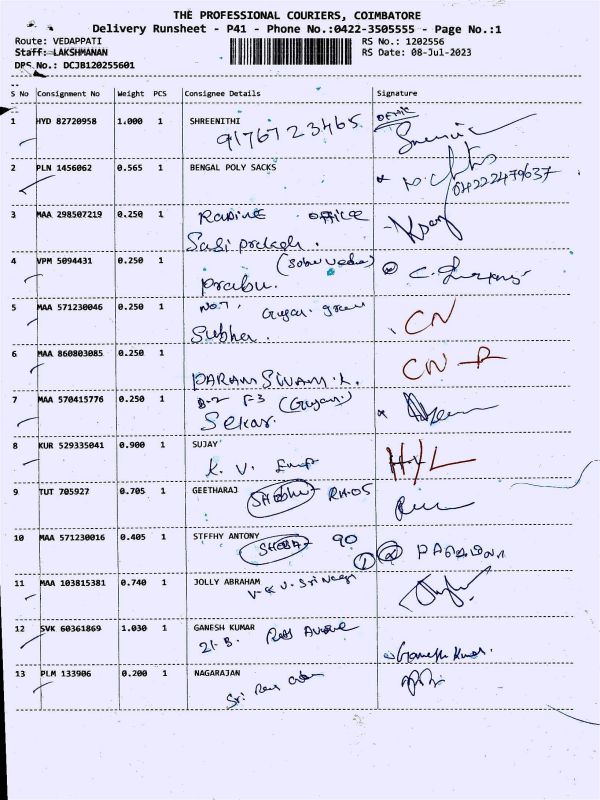 THE PROFESSIONAL COURIERS, COIMBATORE
Delivery Runsheet - P41 - Phone No.:0422-3505555 - Page No.:1
Route: VEDAPPATI RS No.: 1202556
Staff: LAKSHMANAN RS Date: 08-Jul-2023
DRS No.: DCJB120255601
S No Consignment No Weight PCS Consignee Details Signature
1 HYD 82720958 1.000 1 SHREENITHI
9176723465
2 PLN 1456062 0.565 1 BENGAL POLY SACKS
04222479637
3 MAA 298507219 0.250 1 OFFICE
4 VPM 5094431 0.250 1
Prabu.
5 MAA 571230046 0.250 1 No.7,
Subha. CN
6 MAA 860803085 0.250 1 CN-R
PARAMSWAM.K.
7 MAA 570415776 0.250 1 B-2 F3
Sekar.
8 KUR 529335041 0.900 1 SUJAY
K. V. H/L
9 TUT 705927 0.705 1 GEETHARAJ RH.05
10 MAA 571230016 0.405 1 STFFHY ANTONY
SHOBA 90 1
11 MAA 103815381 0.740 1 JOLLY ABRAHAM
12 SVK 60361869 1.030 1 GANESH KUMAR
21.B. Avenue
Ganesh Kumar.
13 PLM 133906 0.200 1 NAGARAJAN
Sri